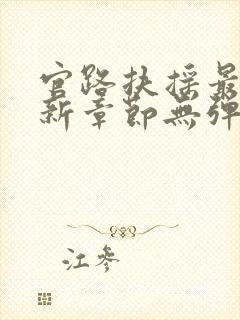 官路扶摇最
新章節無彈
江參